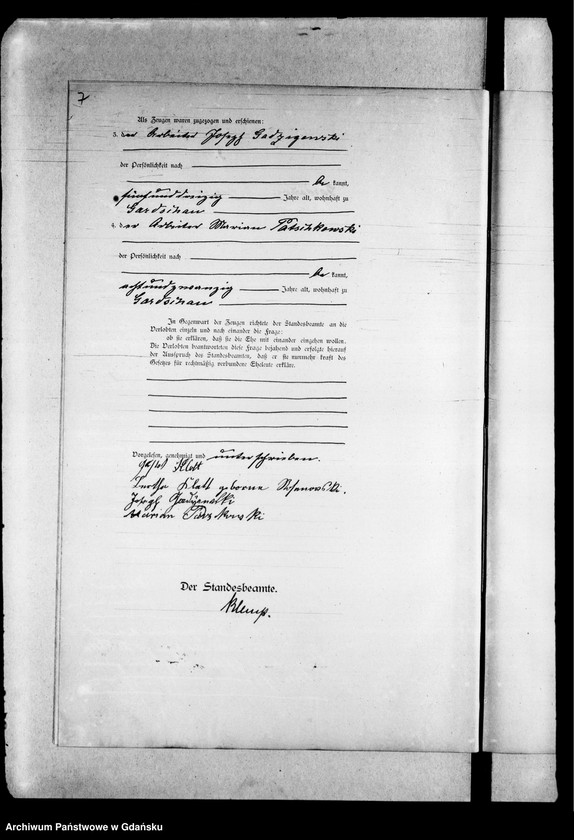 7
Als Zeugen waren zugezogen und erschienen:
3. der Arbeiter Joseph Gadzigewski
der Persönlichkeit nach
be kannt,
fünfunddreizig Jahre alt, wohnhaft zu
Gardschau
4. der Arbeiter Marian Patschkowski
der Persönlichkeit nach
be kannt,
achtundzwanzig Jahre alt, wohnhaft zu
Gardschau
In Gegenwart der Zeugen richtete der Standesbeamte an die
Verlobten einzeln und nach einander die Frage:
ob sie erklären, daß sie die Ehe mit einander eingehen wollen.
Die Verlobten beantworteten diese Frage bejahend und erfolgte hierauf
der Ausspruch des Standesbeamten, daß er sie nunmehr kraft des
Gesetzes für rechtmäßig verbundene Eheleute erkläre.
Vorgelesen, genehmigt und unterschrieben.
Klatt
Klatt geborene
Joseph
Marian
Der Standesbeamte.
Archiwum Państwowe w Gdańsku